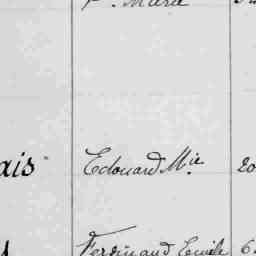 F. Marie
ais Edouard Mie. 20
Ferdinand Emile 6